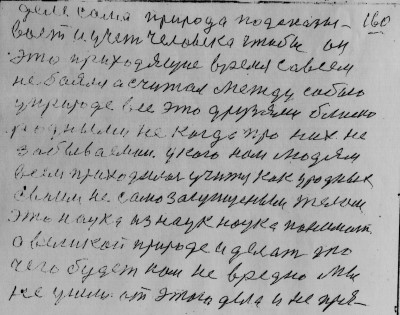 деле сама природа подсказы- 160
вает и учет человека чтобы он
это приходящие время совсем
не боялся а считал между собою
у природе все это друзьями близко
родными не когда про них не
забываемыи. у кого нам людям
всем приходилося учится как у родных
своим не само заслуженым телом
это наука из наук наука понимать
о великой природе и делать это
чего будет нам не вредно мы
не ушли от этого дела и не при-